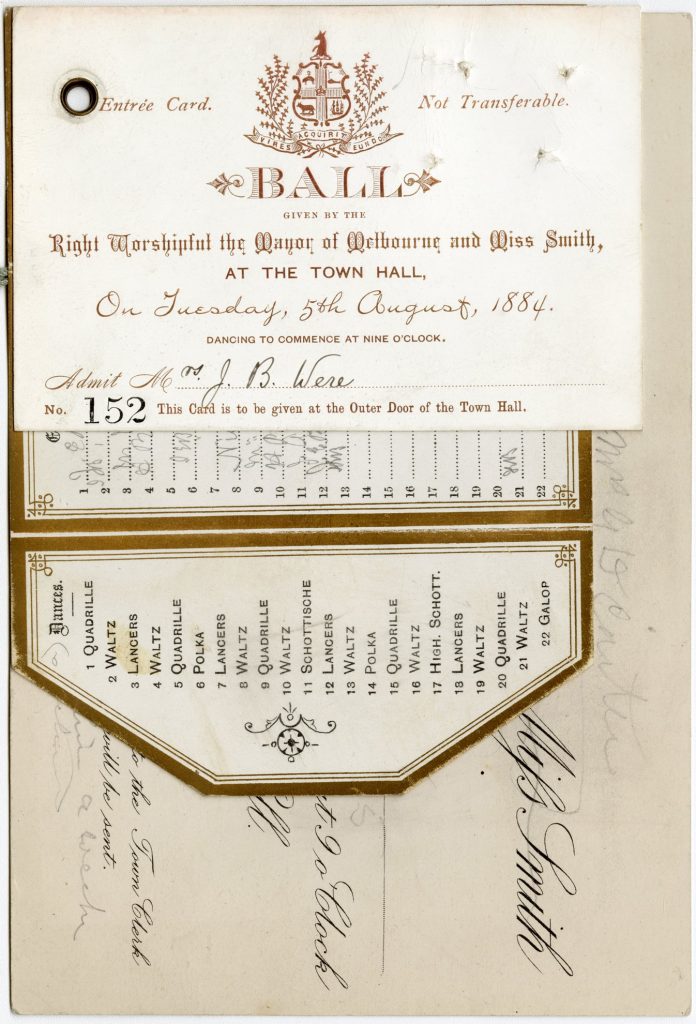 Entrée Card.
Not Transferable.
VIRES ACQUIRIT EUNDO
BALL
GIVEN BY THE
Right Worshipful the Mayor of Melbourne and Miss Smith,
AT THE TOWN HALL,
On Tuesday, 5th August, 1884.
DANCING TO COMMENCE AT NINE O'CLOCK.
Admit Mrs. J. B. Were
No. 152 This Card is to be given at the Outer Door of the Town Hall.
1
2
3
4
5
6
7
8
9
10
11
12
13
14
15
16
17
18
19
20
21
22
Dances.
1 QUADRILLE
2 WALTZ
3 LANCERS
4 WALTZ
5 QUADRILLE
6 POLKA
7 LANCERS
8 WALTZ
9 QUADRILLE
10 WALTZ
11 SCHOTTISCHE
12 LANCERS
13 WALTZ
14 POLKA
15 QUADRILLE
16 WALTZ
17 HIGH. SCHOTT.
18 LANCERS
19 WALTZ
20 QUADRILLE
21 WALTZ
22 GALOP
Miss Smith
at 9 o'Clock
to the Town Clerk
will be sent.